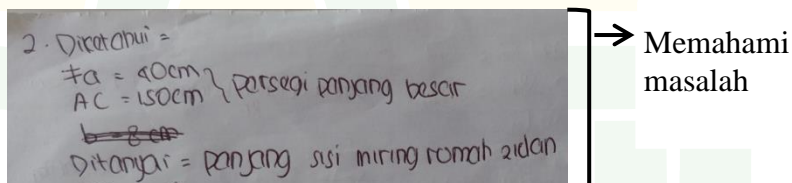 2. Diketahui =
Fa = 90cm } persegi panjang besar
AC = 150cm
b = 8 cm
Ditanyai = panjang sisi miring romah zidan
Memahami
masalah